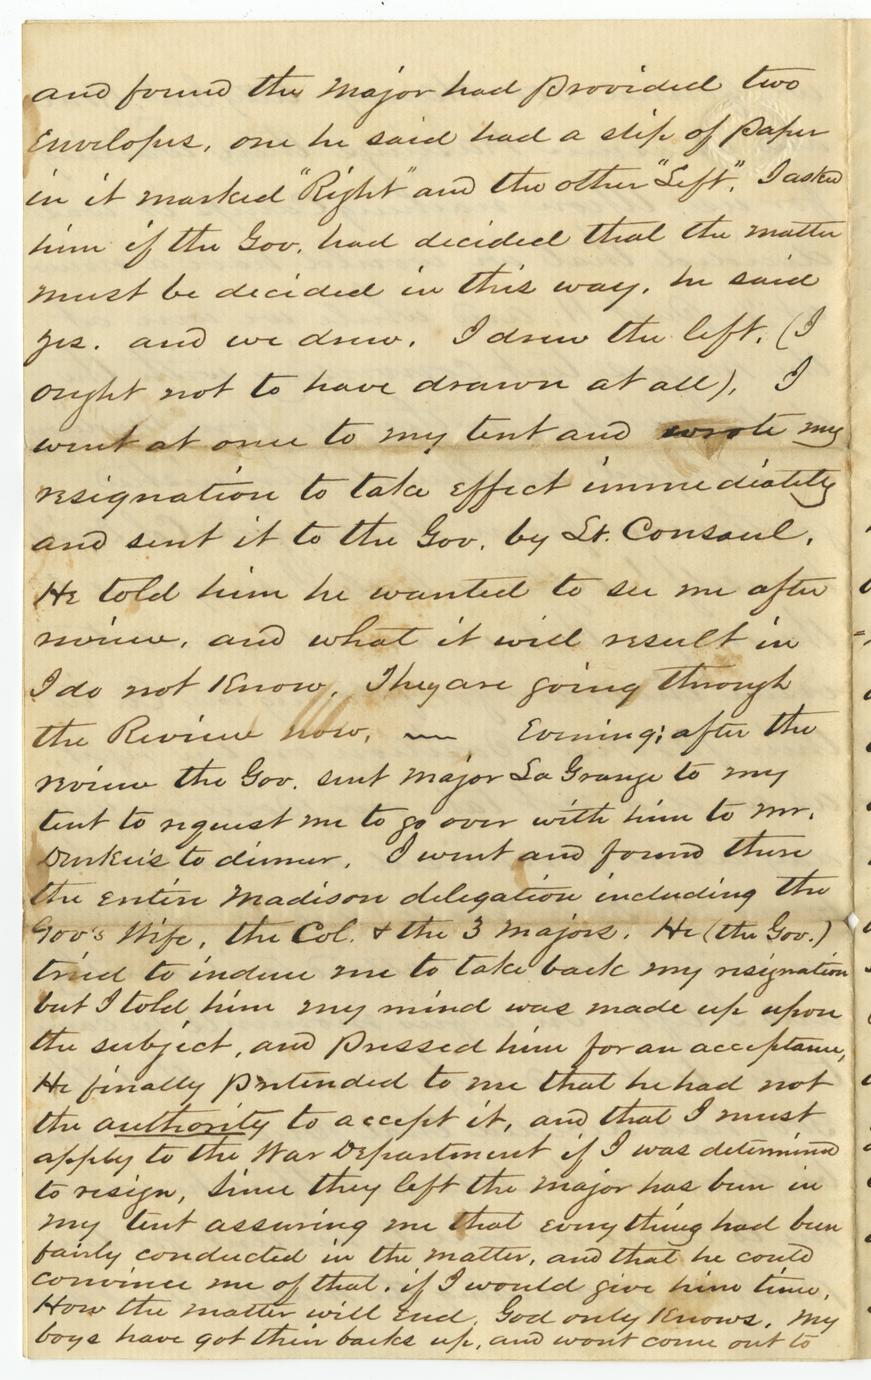 and found the Major had provided two
Envelopes, one he said had a slip of paper
in it marked "Right" and the other "Left". I asked
him if the Gov. had decided that the matter
must be decided in this way, he said
yes. and we drew. I drew the left. (I
ought not to have drawn at all), I
went at once to my tent and wrote my
resignation to take effect immediately
and sent it to the Gov. by Lt. Consaul.
He told him he wanted to see me after
review, and what it will result in
I do not Know. They are going through
the Review now. — Evening; after the
review the Gov. sent Major La Grange to my
tent to request me to go over with him to Mr.
Durkee's to dinner. I went and found there
the entire Madison delegation including the
Gov's Wife, the Col. & the 3 Majors. He (the Gov.)
tried to induce me to take back my resignation
but I told him my mind was made up upon
the subject, and pressed him for an acceptance,
He finally pretended to me that he had not
the authority to accept it, and that I must
apply to the War Department if I was determined
to resign, Since they left the Major has been in
my tent assuring me that everything had been
fairly conducted in the matter, and that he could
convince me of that. if I would give him time,
How the matter will End, God only Knows. My
boys have got their backs up, and wont come out to